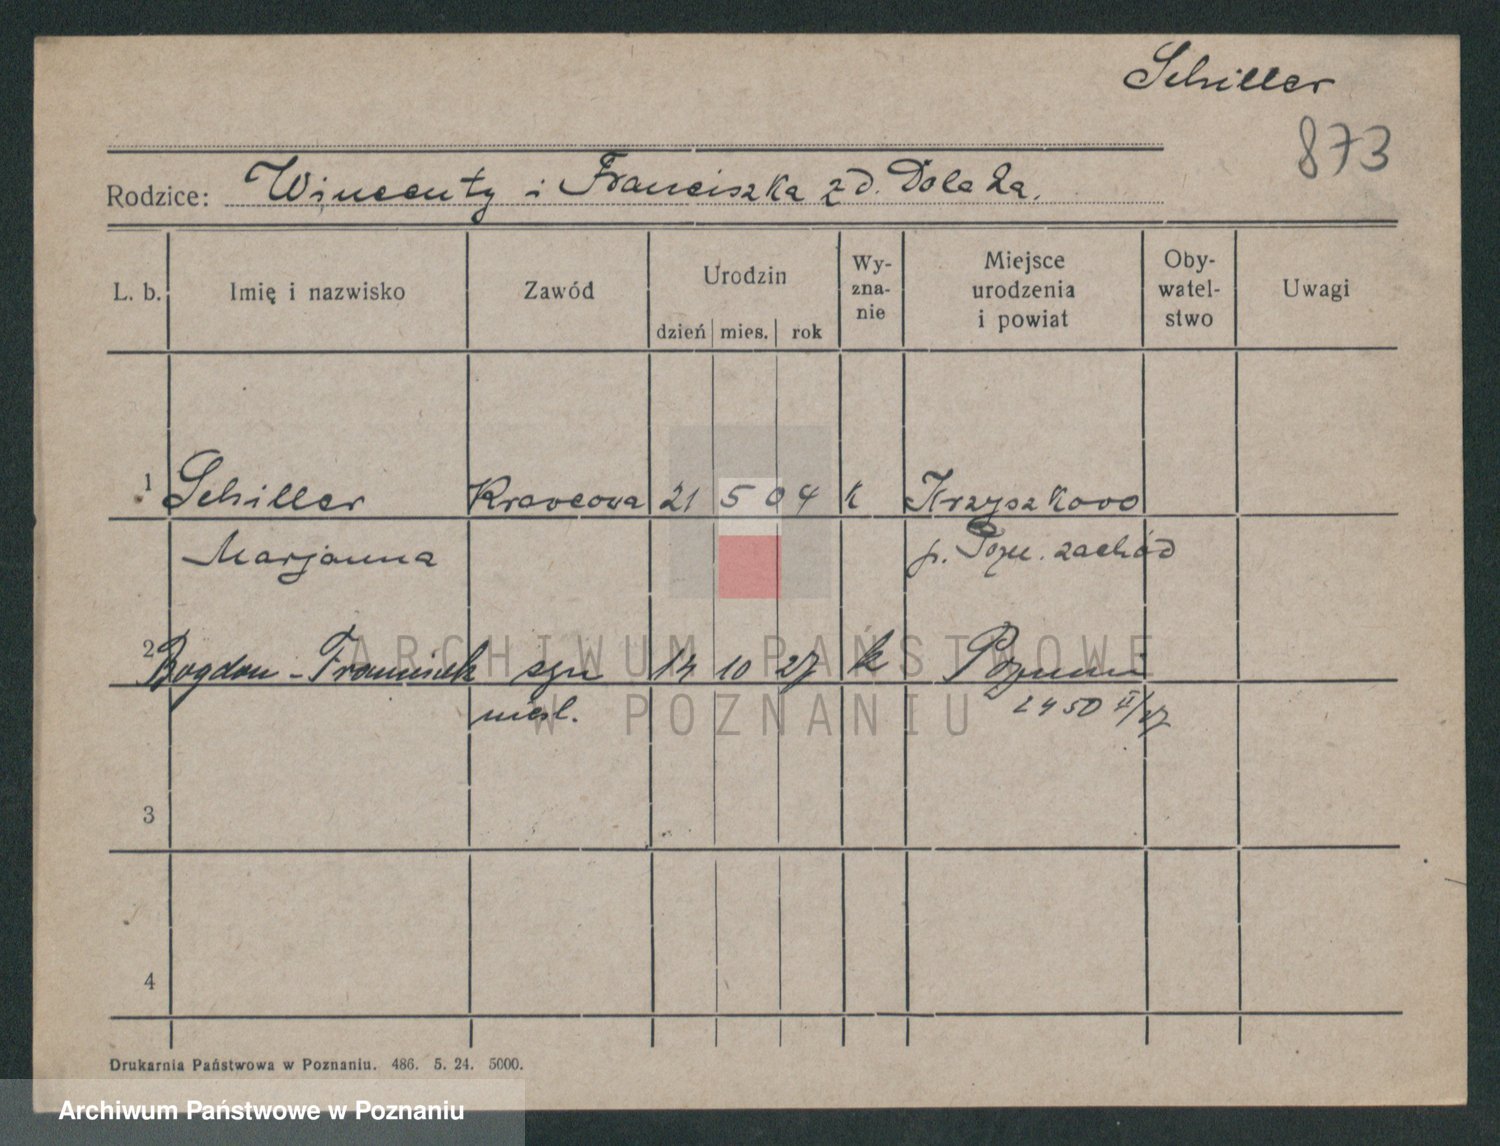 Schiller
873
Rodzice: Wincenty i Franciszka zd. Dolata.
L. b. Imię i nazwisko Zawód Urodzin dzień mies. rok Wy-zna-nie Miejsce urodzenia i powiat Oby-watel-stwo Uwagi
1 Schiller Krawcowa 21 5 04 k Krzyszkowo
Marjanna p. Pozn. zachód
2 Bogdan-Franciszek syn 14 10 27 k Poznań
nieśl. 2450 II/27
3
4
Drukarnia Państwowa w Poznaniu. 486. 5. 24. 5000.
ARCHIWUM PAŃSTWOWE
W POZNANIU
Archiwum Państwowe w Poznaniu